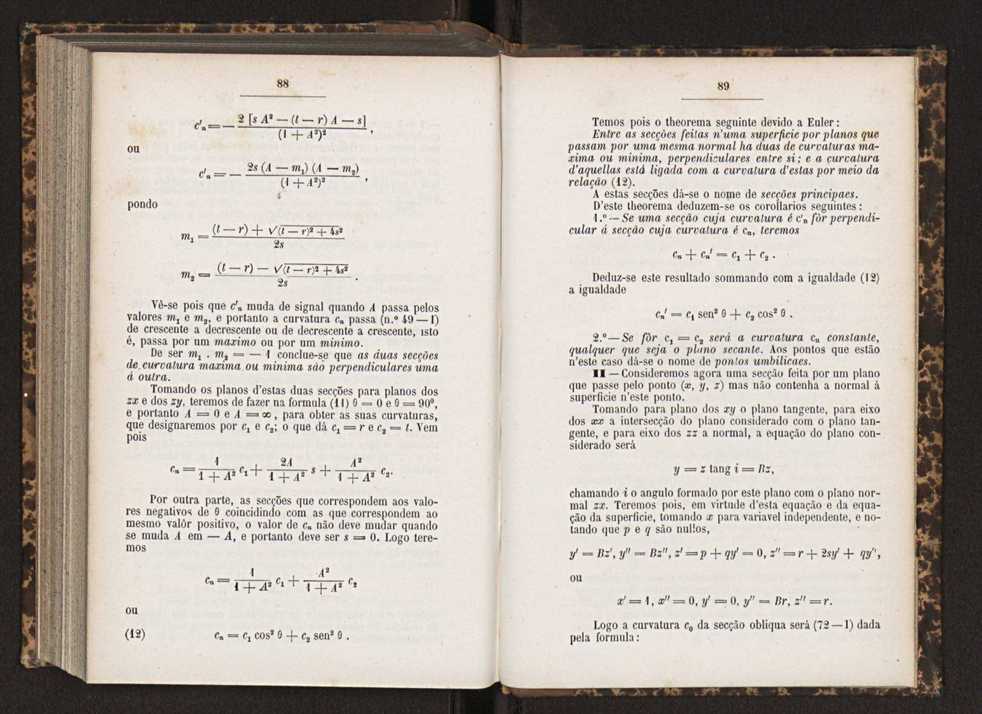 88
c'ₙ = — 2 [s A² — (t — r) A — s] / (1 + A²)² ,
ou
c'ₙ = — 2s (A — m₁) (A — m₂) / (1 + A²)² ,
pondo
m₁ = (t — r) + √(t — r)² + 4s² / 2s
m₂ = (t — r) — √(t — r)² + 4s² / 2s .
Vê-se pois que c'ₙ muda de signal quando A passa pelos
valores m₁ e m₂, e portanto a curvatura cₙ passa (n.º 49 — I)
de crescente a decrescente ou de decrescente a crescente, isto
é, passa por um maximo ou por um minimo.
De ser m₁ . m₂ = — 1 conclue-se que as duas secções
de curvatura maxima ou minima são perpendiculares uma
á outra.
Tomando os planos d'estas duas secções para planos dos
zx e dos zy, teremos de fazer na formula (11) θ = 0 e θ = 90°,
e portanto A = 0 e A = ∞, para obter as suas curvaturas,
que designaremos por c₁ e c₂; o que dá c₁ = r e c₂ = t. Vem
pois
cₙ = 1 / (1 + A²) c₁ + 2A / (1 + A²) s + A² / (1 + A²) c₂.
Por outra parte, as secções que correspondem aos valo-
res negativos de θ coincidindo com as que correspondem ao
mesmo valôr positivo, o valor de cₙ não deve mudar quando
se muda A em — A, e portanto deve ser s = 0. Logo tere-
mos
cₙ = 1 / (1 + A²) c₁ + A² / (1 + A²) c₂
ou
(12) cₙ = c₁ cos² θ + c₂ sen² θ .
89
Temos pois o theorema seguinte devido a Euler:
Entre as secções feitas n'uma superficie por planos que
passam por uma mesma normal ha duas de curvaturas ma-
xima ou minima, perpendiculares entre si; e a curvatura
d'aquellas está ligada com a curvatura d'estas por meio da
relação (12).
A estas secções dá-se o nome de secções principaes.
D'este theorema deduzem-se os corollarios seguintes:
1.º — Se uma secção cuja curvatura é c'ₙ fôr perpendi-
cular á secção cuja curvatura é cₙ, teremos
cₙ + cₙ' = c₁ + c₂ .
Deduz-se este resultado sommando com a igualdade (12)
a igualdade
cₙ' = c₁ sen² θ + c₂ cos² θ .
2.º — Se fôr c₁ = c₂ será a curvatura cₙ constante,
qualquer que seja o plano secante. Aos pontos que estão
n'este caso dá-se o nome de pontos umbilicaes.
II — Consideremos agora uma secção feita por um plano
que passe pelo ponto (x, y, z) mas não contenha a normal á
superficie n'este ponto.
Tomando para plano dos xy o plano tangente, para eixo
dos xx a intersecção do plano considerado com o plano tan-
gente, e para eixo dos zz a normal, a equação do plano con-
siderado será
y = z tang i = Bz,
chamando i o angulo formado por este plano com o plano nor-
mal zx. Teremos pois, em virtude d'esta equação e da equa-
ção da superficie, tomando x para variavel independente, e no-
tando que p e q são nullos,
y' = Bz', y'' = Bz'', z' = p + qy' = 0, z'' = r + 2sy' + qy'',
ou
x' = 1, x'' = 0, y' = 0, y'' = Br, z'' = r.
Logo a curvatura c₀ da secção obliqua será (72 — 1) dada
pela formula: